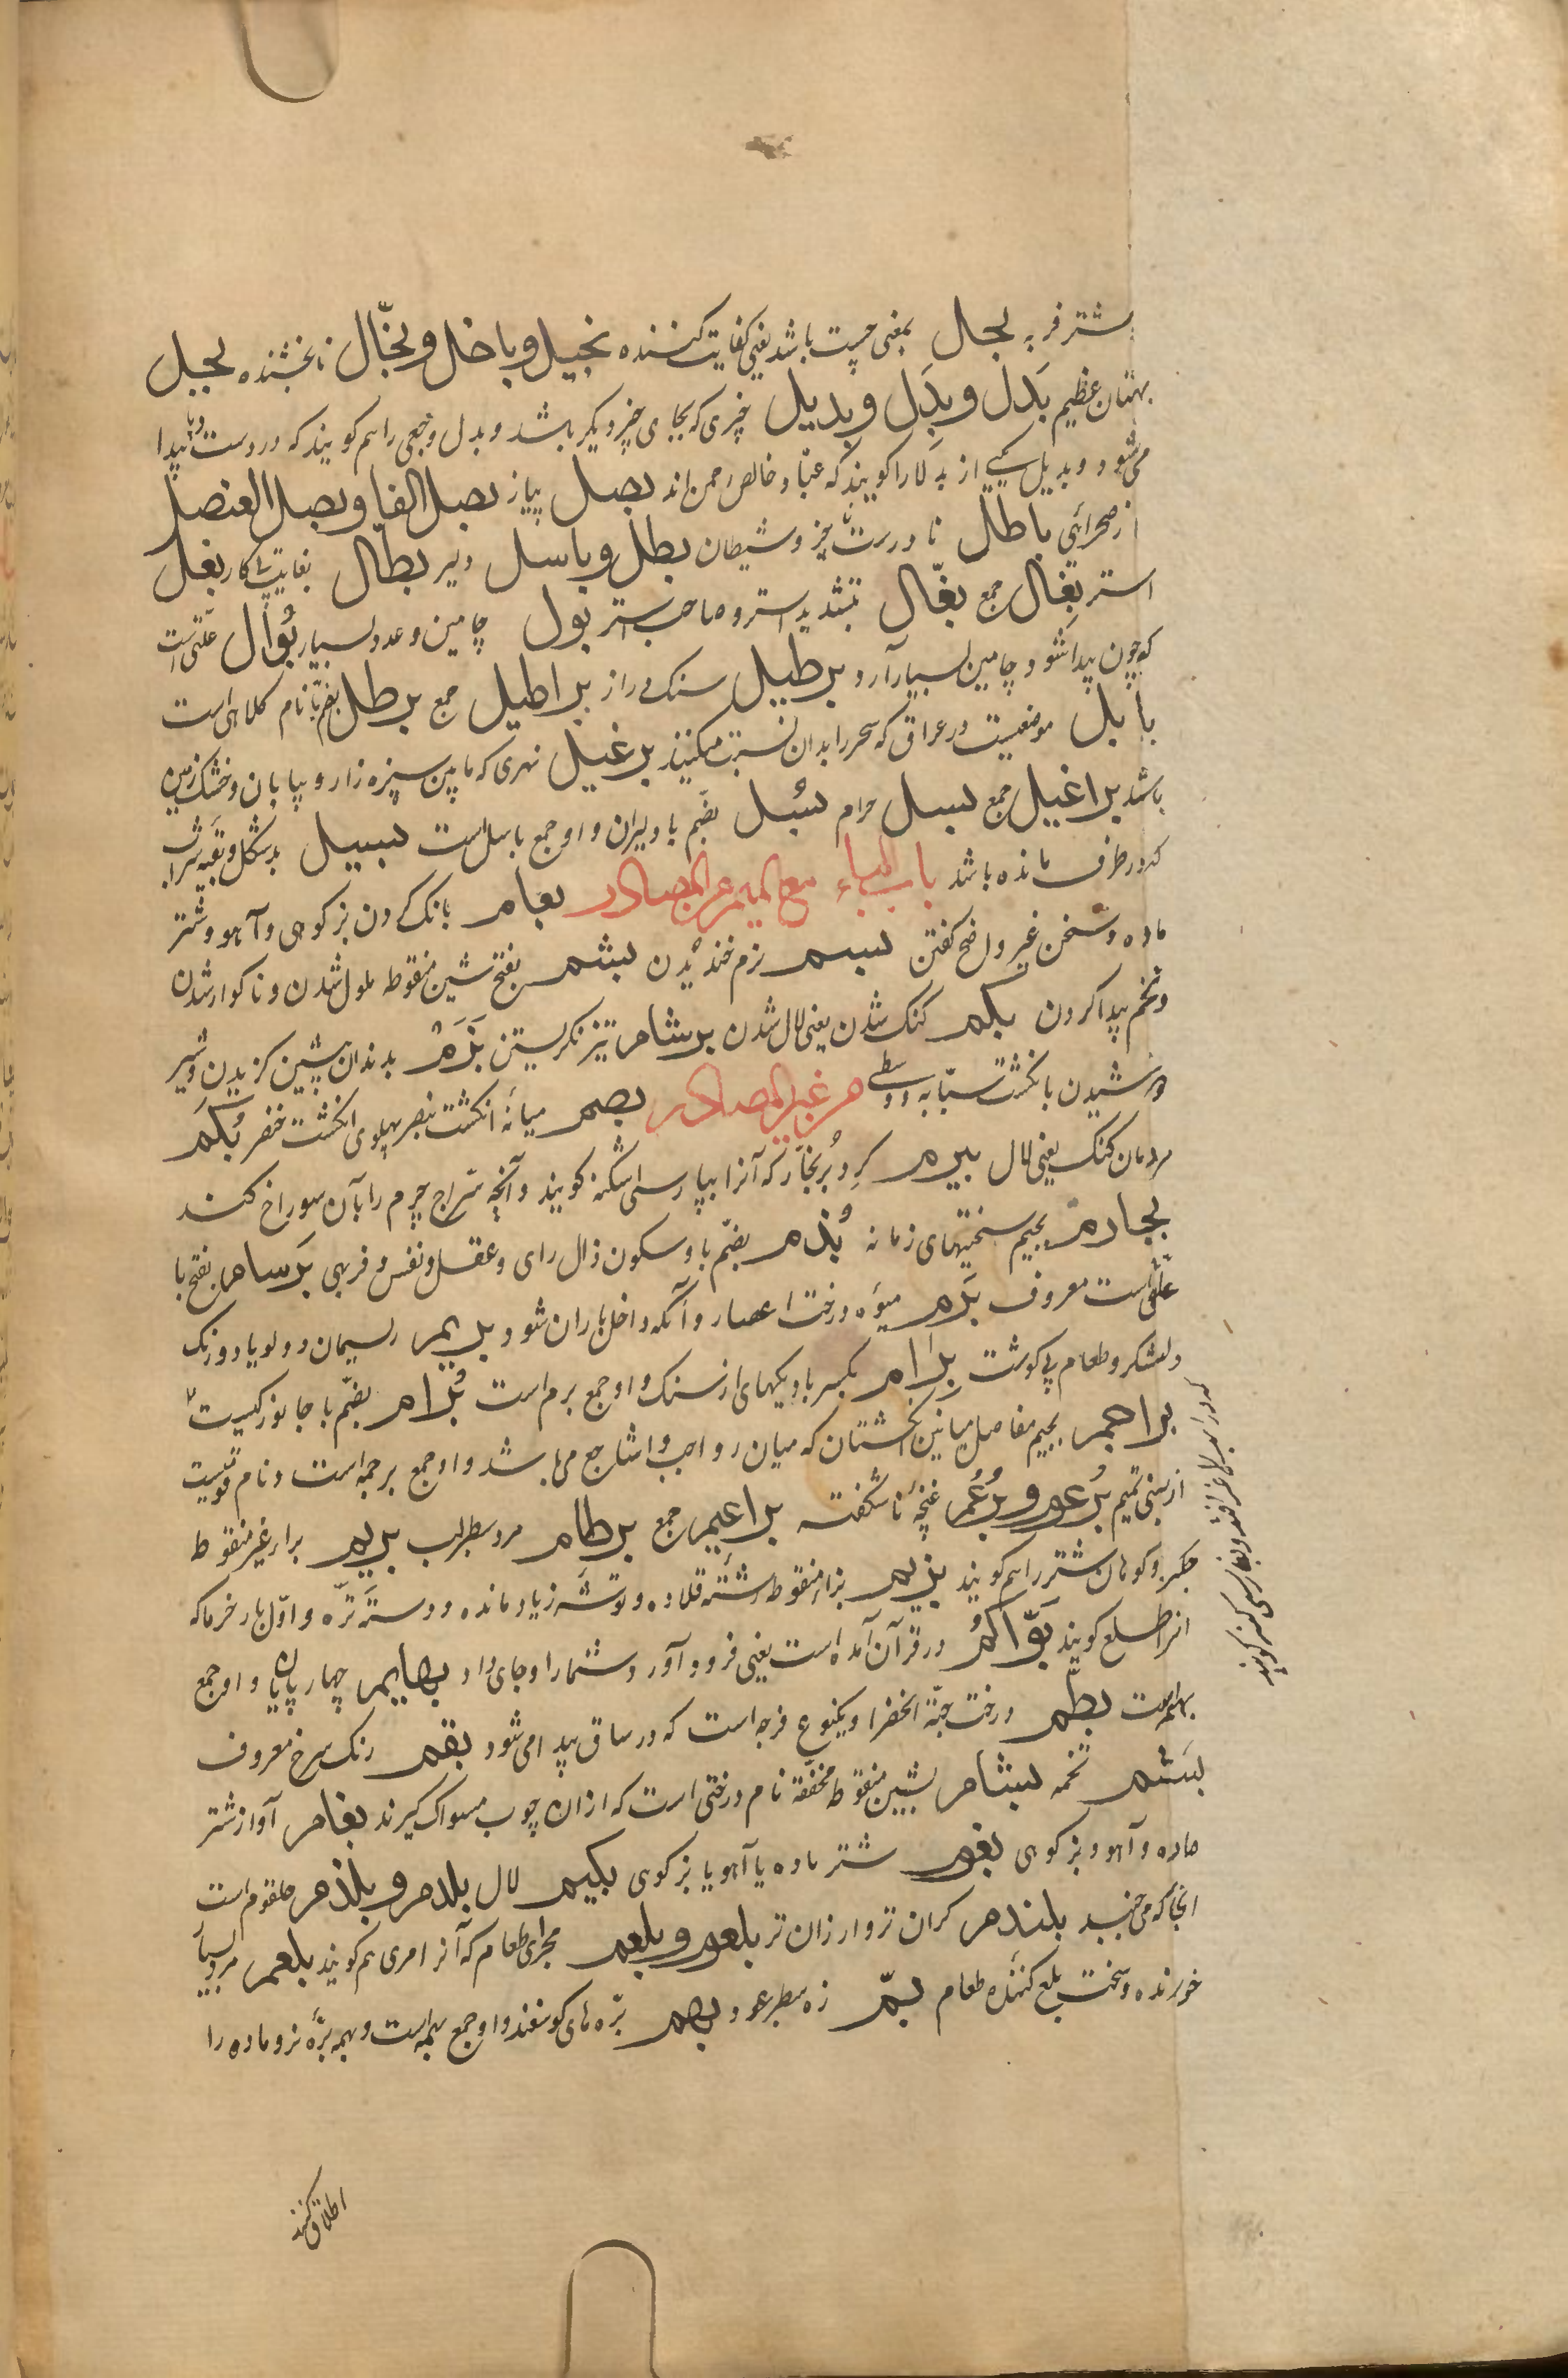 شتر فربه بجال بمعنی حسیت باشد یعنی کفایت کننده بخیل و باخل و بخّال نابخشنده بجیل
بهتان عظیم بَدَل و بِدَل و بدیل چیزی که بجای چیز دیگر باشد و بدل وجعی را هم کویند که در دست و پا پیدا
می شود و بدیل یکی از بدلا را کویند که عبّاد خالص رحمن اند بصل پیاز بصل الفا و بصل العنصل
صحرائی باطل نادرست و چیز و شیطان بطل و باسل دلیر بطال بغایت بیکار بغل
استر بغال جمع بغّال بتشدید استر و صاحب استر بول چامین و عدد بسیار بُوال علتی است
که چون پیدا شود چامین بسیار آرد برطیل سنک دراز براطیل جمع برطل بضم با نام کلاهی است
بابل موضعیست در عراق که سحر را بدان نسبت میکنند برغیل نهری که مابین سبزه زار و بیابان و خشک زمین
باشد براغیل جمع بسل حرام بُسُل بضم با دلیران و او جمع باسل است بسیل بدشکل و بقیه شراب
که در ظرف مانده باشد باب الباء مع المیم من المصادر بغام بانک کردن بز کوهی و آهو و شتر
ماده و سخن غیر واضح کفتن بسم نرم خندیدن بشم بفتح شین منقوطه ملول شدن و ناکوار شدن
و تخم پیدا کردن بکم کنک شدن یعنی لال شدن برشام تیز نکریستن بَزَم بدندان پیشین کزیدن و شیر
دوشیدن بانکشت سبّابه و وسطی من غیر المصادر بصم میانه انکشت بنصر پهلوی انکشت خنصر بُکم
مردمان کنک یعنی لال بیرم کرد بُر نجّار که آنرا بپارسی اشکنه کویند و آنچه سرّاج چرم را بآن سوراخ کند
بجارم بجیم سختیهای زمانه بُذم بضم با و سکون ذال رای و عقل و نفس و فربهی بَرسام بفتح با
علتی است معروف بَرَم میوه درخت اعصار و آنکه داخل باران شود بریم ریسمان دولو یا دو رنک
و لشکر و طعام بی کوشت بِرام بکسر با دیکهای از سنک و او جمع برم است بُرام بضم با جانورکیست
براجم بجیم مفاصل میانین انکشتان که میان رواجب و اشاجع می باشد و او جمع برجمه است و نام قومیست
از بنی تمیم بُرعوم و بُرعُم غنچه ناشکفته براعیم جمع برطام مرد سطبر لب بریم برار غیر منقوط
جکر و کوهان شتر را هم کویند بزیم بزار منقوط رشته قلاده و توشه زیاد مانده و دسته تره و اول بار خرما که
انرا طلع کویند بَوّاَکُم در قرآن آمده است یعنی فرود آورد شما را و جای داد بهایم چهار پایان و او جمع
بهیمه است بطم درخت حبّة الخضرا و یکنوع قرحه است که در ساق پیدا می شود بقم رنک سرخ معروف
بَشَم تخمه بشام بشین منقوط مخففه نام درختی است که از ان چوب مسواک کیرند بغام آواز شتر
ماده و آهو و بز کوهی بغوم شتر ماده یا آهو یا بز کوهی بکیم لال بلدم و بلذم حلقوم است
انجا که می جنبد بلندم کران تر و ارزان تر بلعوم و بلعم مجرای طعام که آنرا مری هم کویند بلعم مرد بسیار
خورنده و سخت بلع کننده طعام بمّ زه سطبر عود بهم بره های کوسفند و او جمع بهمه است و بهمه بره نر و ماده را
اطلاق کنند